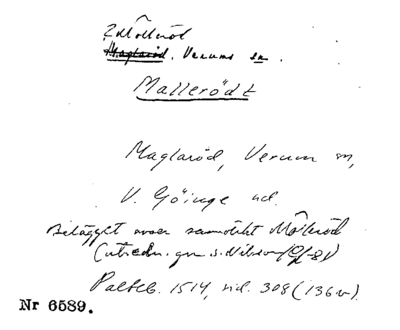 ? Mölleröd
Maglaröd. Verums sn.
Mallerödt
Maglaröd, Verum sn,
V. Göinge hd.
Belägget avser samtidigt Mölleröd
Palteb. 1514, sid. 308 (136 v).
Nr 6589.